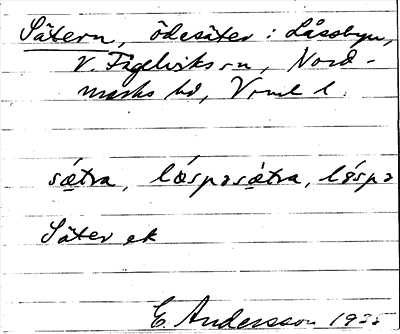 Sätern, ödesäter: Låssbyn,
V. Fågelviks sn, Nord-
marks hd, Vrml l.
sǽtra, lǻspəsǽtra, lǻspə
Säter ek
E. Andersson 1935